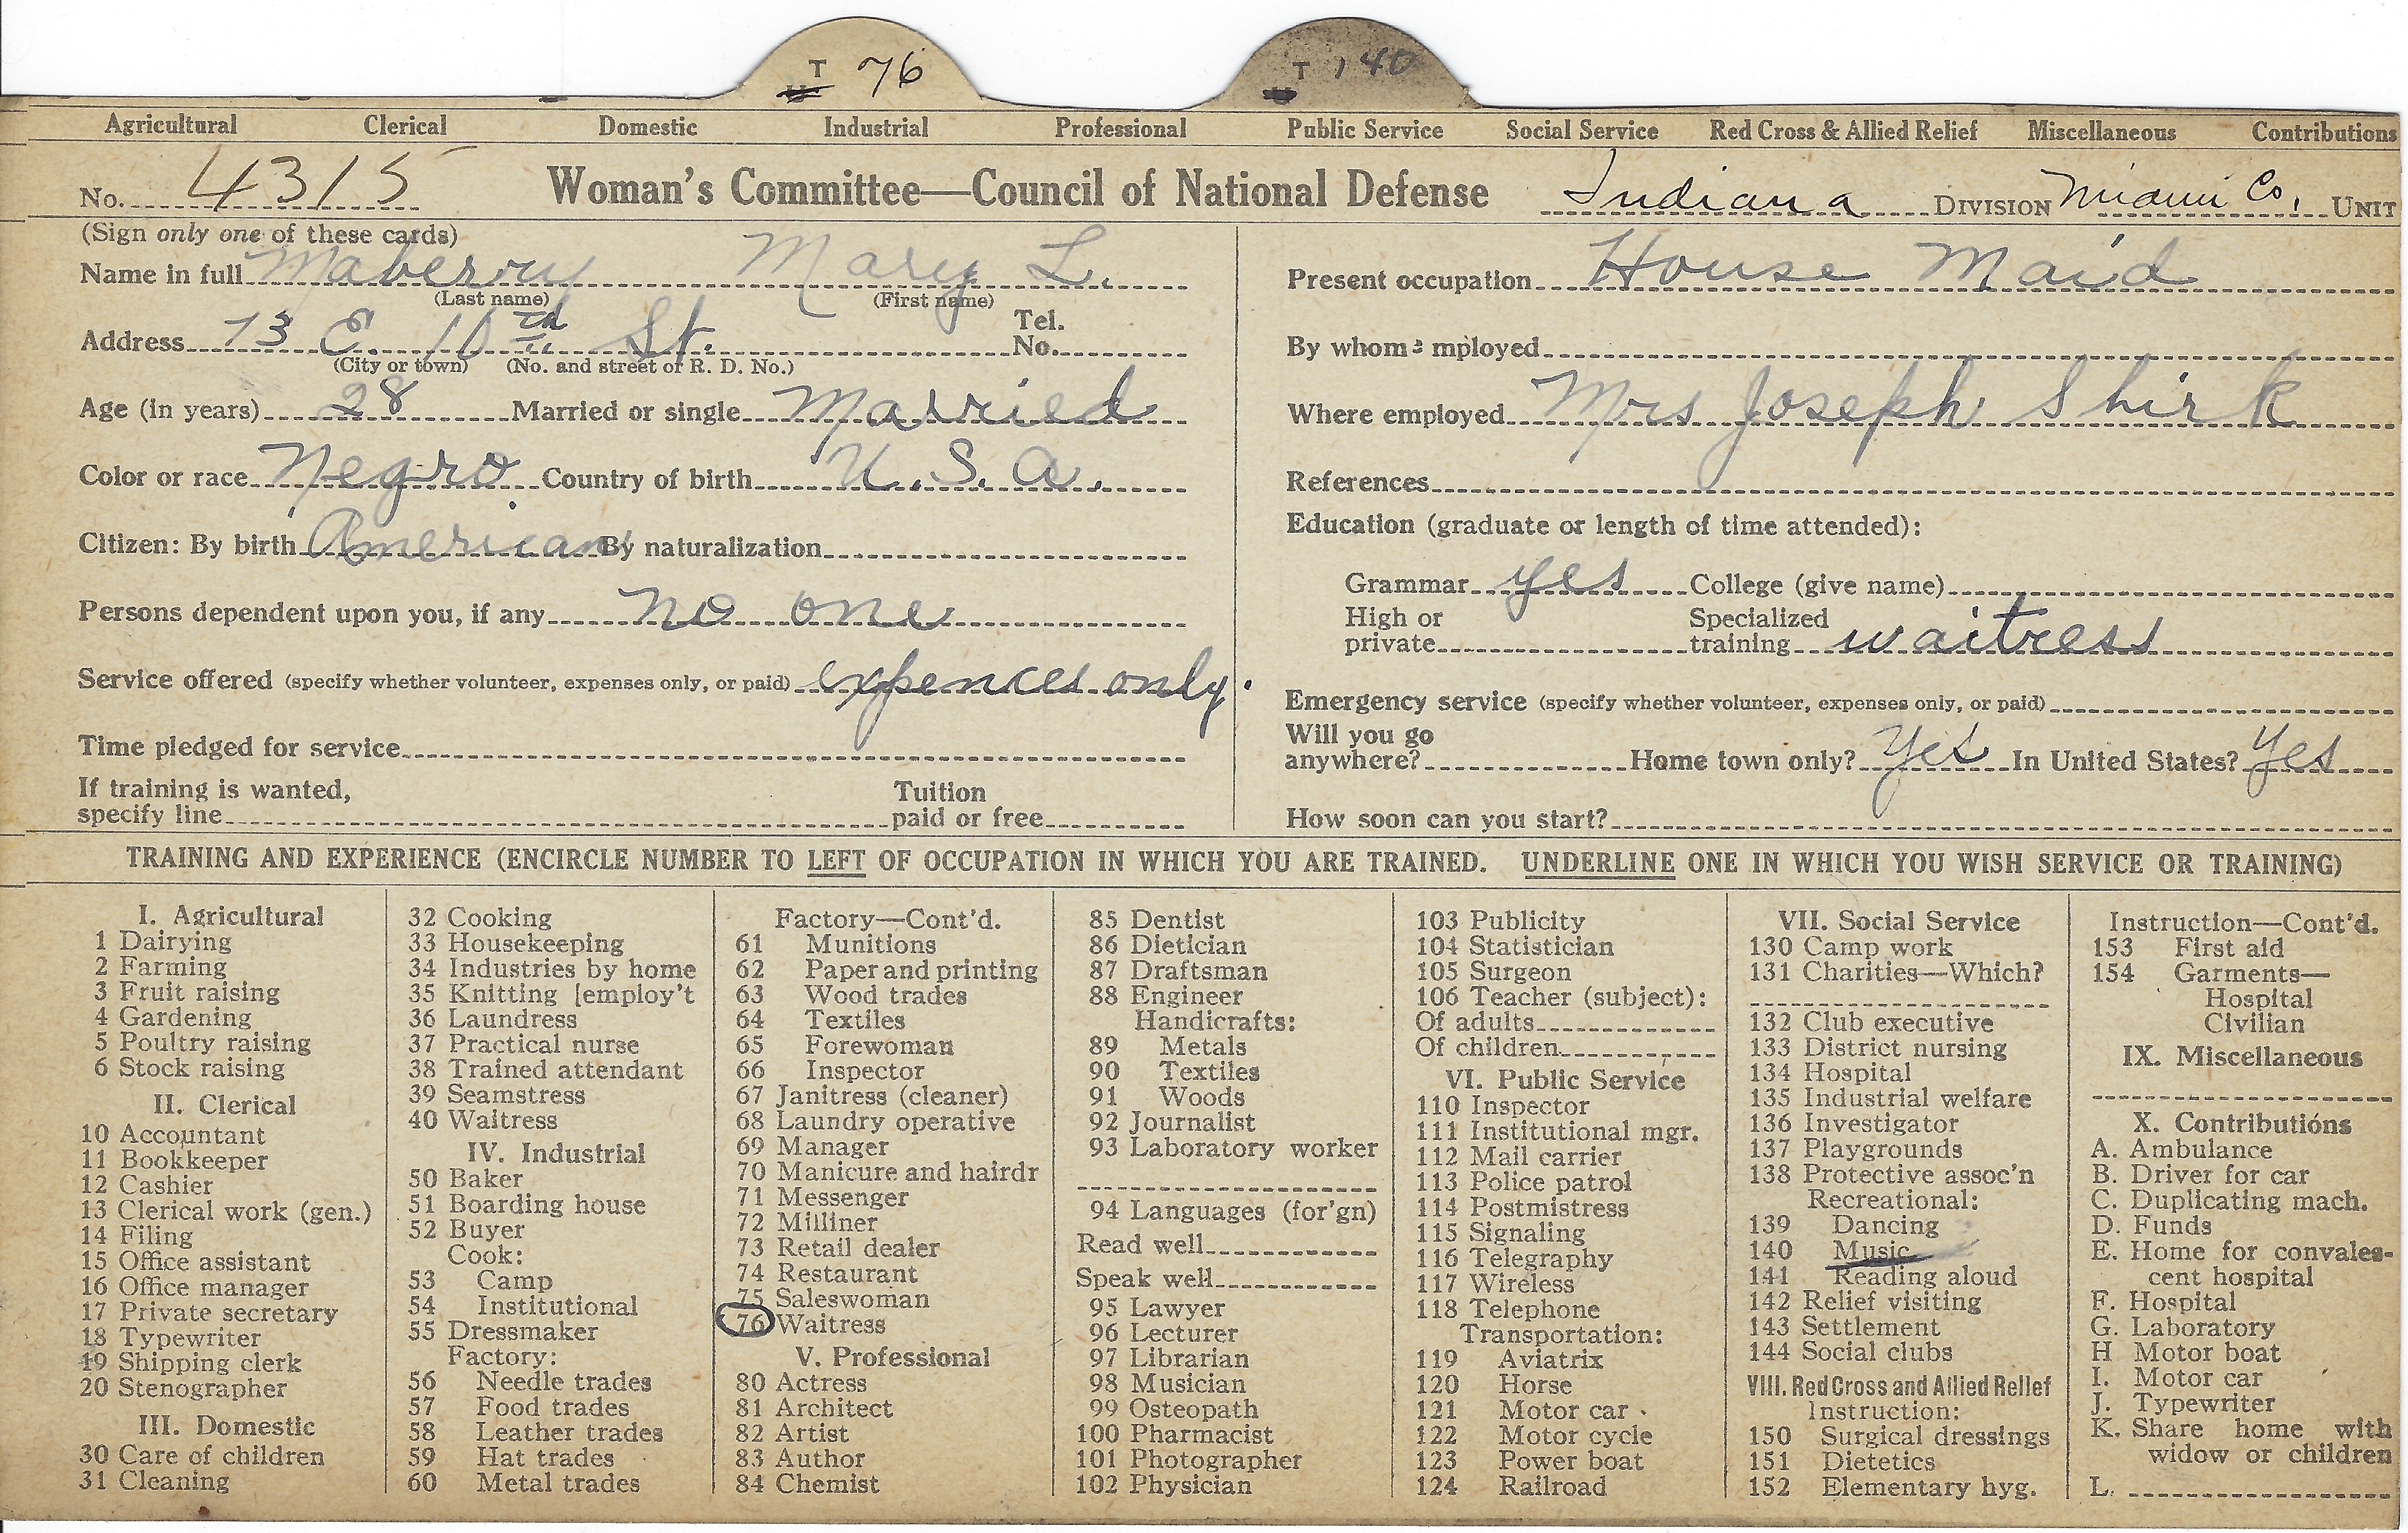 T 76 T 140
Agricultural Clerical Domestic Industrial Professional Public Service Social Service Red Cross & Allied Relief Miscellaneous Contributions
No. 4315 Woman's Committee—Council of National Defense Indiana DIVISION Miami Co. UNIT
(Sign only one of these cards)
Name in full Maberry Mary L.
(Last name) (First name)
Address 73 E. 10th St. Tel. No.
(City or town) (No. and street or R. D. No.)
Age (in years) 28 Married or single Married
Color or race Negro Country of birth U.S.A.
Citizen: By birth American By naturalization
Persons dependent upon you, if any no one
Service offered (specify whether volunteer, expenses only, or paid) expences only.
Time pledged for service
If training is wanted,
specify line Tuition paid or free
Present occupation House Maid
By whom employed
Where employed Mrs Joseph Shirk
References
Education (graduate or length of time attended):
Grammar yes College (give name)
High or private Specialized training waitress
Emergency service (specify whether volunteer, expenses only, or paid)
Will you go
anywhere? Home town only? Yes In United States? Yes
How soon can you start?
TRAINING AND EXPERIENCE (ENCIRCLE NUMBER TO LEFT OF OCCUPATION IN WHICH YOU ARE TRAINED. UNDERLINE ONE IN WHICH YOU WISH SERVICE OR TRAINING)
I. Agricultural
1 Dairying
2 Farming
3 Fruit raising
4 Gardening
5 Poultry raising
6 Stock raising
II. Clerical
10 Accountant
11 Bookkeeper
12 Cashier
13 Clerical work (gen.)
14 Filing
15 Office assistant
16 Office manager
17 Private secretary
18 Typewriter
19 Shipping clerk
20 Stenographer
III. Domestic
30 Care of children
31 Cleaning
32 Cooking
33 Housekeeping
34 Industries by home
35 Knitting [employ't
36 Laundress
37 Practical nurse
38 Trained attendant
39 Seamstress
40 Waitress
IV. Industrial
50 Baker
51 Boarding house
52 Buyer
Cook:
53 Camp
54 Institutional
55 Dressmaker
Factory:
56 Needle trades
57 Food trades
58 Leather trades
59 Hat trades
60 Metal trades
Factory—Cont'd.
61 Munitions
62 Paper and printing
63 Wood trades
64 Textiles
65 Forewoman
66 Inspector
67 Janitress (cleaner)
68 Laundry operative
69 Manager
70 Manicure and hairdr
71 Messenger
72 Milliner
73 Retail dealer
74 Restaurant
75 Saleswoman
76 Waitress
V. Professional
80 Actress
81 Architect
82 Artist
83 Author
84 Chemist
85 Dentist
86 Dietician
87 Draftsman
88 Engineer
Handicrafts:
89 Metals
90 Textiles
91 Woods
92 Journalist
93 Laboratory worker
94 Languages (for'gn)
Read well
Speak well
95 Lawyer
96 Lecturer
97 Librarian
98 Musician
99 Osteopath
100 Pharmacist
101 Photographer
102 Physician
103 Publicity
104 Statistician
105 Surgeon
106 Teacher (subject):
Of adults
Of children
VI. Public Service
110 Inspector
111 Institutional mgr.
112 Mail carrier
113 Police patrol
114 Postmistress
115 Signaling
116 Telegraphy
117 Wireless
118 Telephone
Transportation:
119 Aviatrix
120 Horse
121 Motor car
122 Motor cycle
123 Power boat
124 Railroad
VII. Social Service
130 Camp work
131 Charities—Which?
132 Club executive
133 District nursing
134 Hospital
135 Industrial welfare
136 Investigator
137 Playgrounds
138 Protective assoc'n
Recreational:
139 Dancing
140 Music
141 Reading aloud
142 Relief visiting
143 Settlement
144 Social clubs
VIII. Red Cross and Allied Relief
Instruction:
150 Surgical dressings
151 Dietetics
152 Elementary hyg.
Instruction—Cont'd.
153 First aid
154 Garments—
Hospital
Civilian
IX. Miscellaneous
X. Contributions
A. Ambulance
B. Driver for car
C. Duplicating mach.
D. Funds
E. Home for convales-
cent hospital
F. Hospital
G. Laboratory
H Motor boat
I. Motor car
J. Typewriter
K. Share home with
widow or children
L.